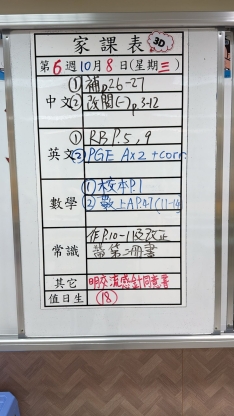 家課表 3D
第6週10月8日(星期三)
中文 ① 補p.26-27
② 改閱(一)p.3-12
英文 ① RB P.5, 9
② PGE Ax2 + corr
數學 ① 校本P.1
② 數上AP.47(11-14)
常識 作P.10-11及改正
帶第二冊書
其它 明交流感針同意書
值日生 (18)